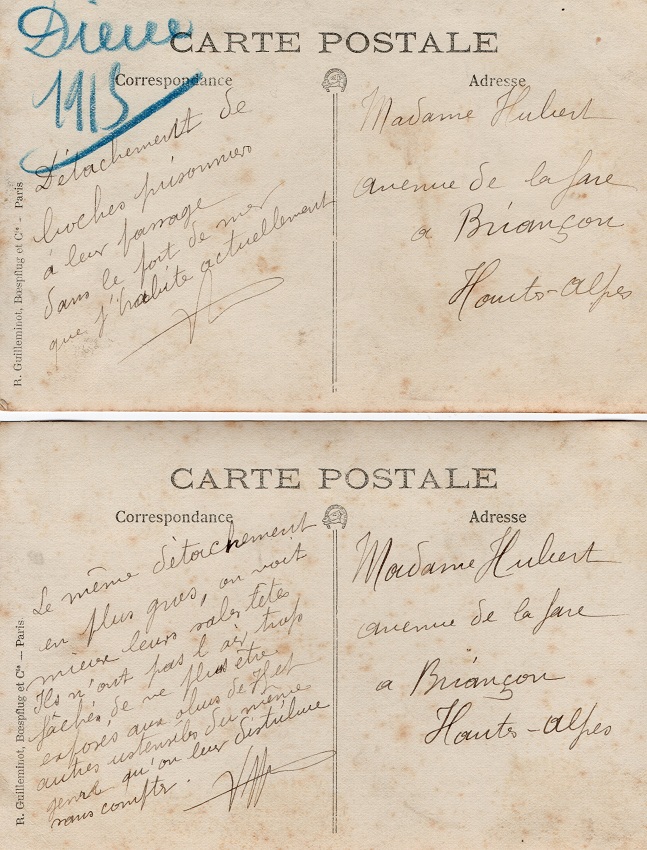 1915
CARTE POSTALE
Correspondance
Adresse
Détachement de
boches prisonniers
à leur passage
dans le fort de mer
que j'habite actuellement
Madame Hubert
avenue de la gare
a Briançon
Hautes-Alpes
R. Guilleminot, Bœspflug et Cie - Paris
CARTE POSTALE
Correspondance
Adresse
Le même détachement
en plus gros, on voit
mieux leurs sales têtes
Ils n'ont pas l'air trop
fâchés de ne plus être
exposés aux obus de 75 et
autres ustensiles du même
genre qu'on leur distribue
sans compter.
Madame Hubert
avenue de la gare
a Briançon
Hautes-Alpes
R. Guilleminot, Bœspflug et Cie - Paris